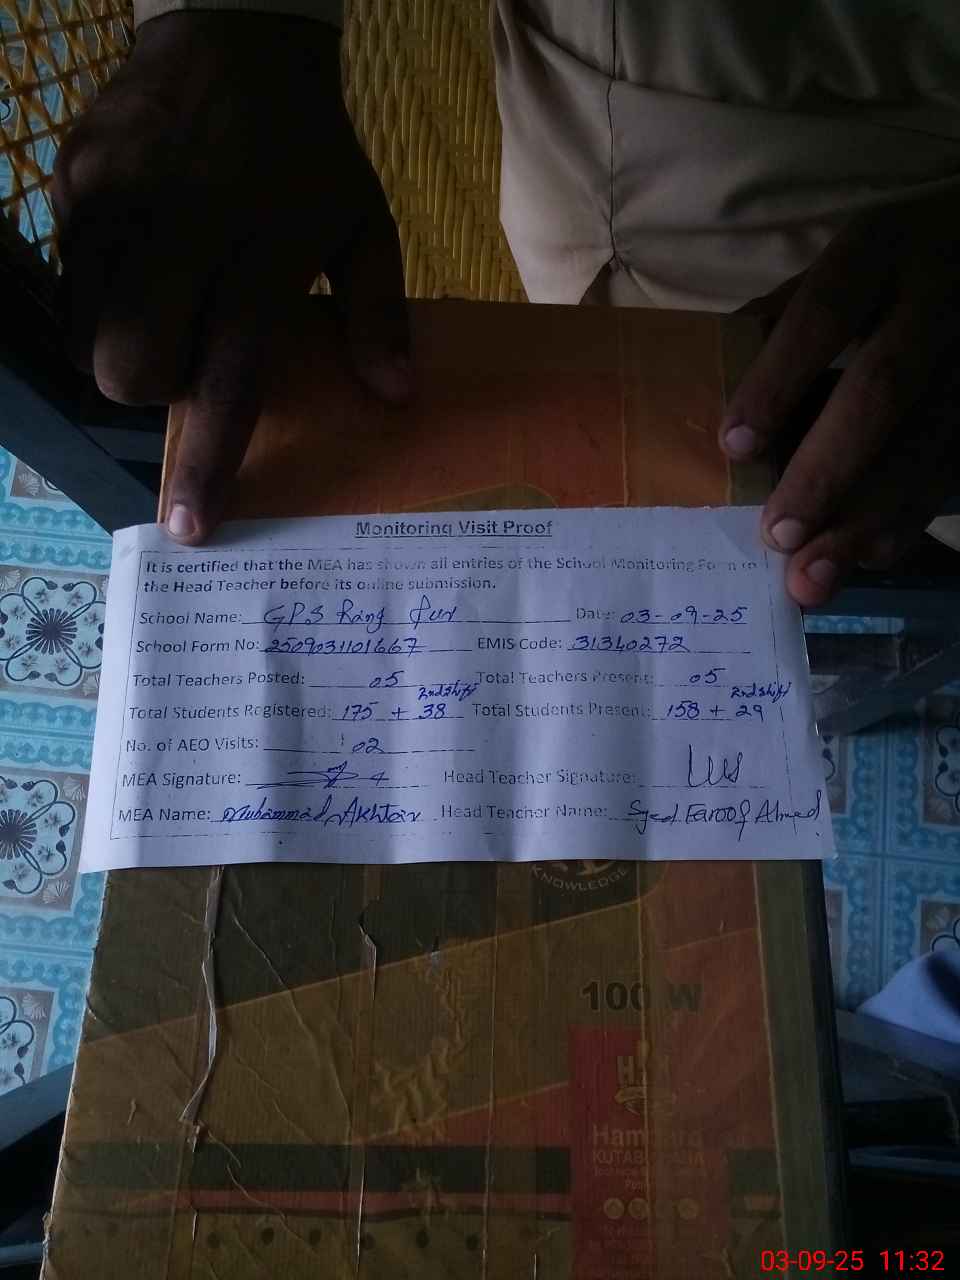 Monitoring Visit Proof
It is certified that the MEA has shown all entries of the School Monitoring Form to
the Head Teacher before its online submission.
School Name: GPS Rang Pur Date: 03-09-25
School Form No: 2509031101667 EMIS Code: 31340272
Total Teachers Posted: 05 Total Teachers Present: 05
Total Students Registered: 175 + 38 2nd shift Total Students Present: 158 + 29 2nd shift
No. of AEO Visits: 02
MEA Signature: Head Teacher Signature:
MEA Name: Muhammad Akhtar Head Teacher Name: Syed Farooq Ahmed
KNOWLEDGE
100 W
03-09-25 11:32